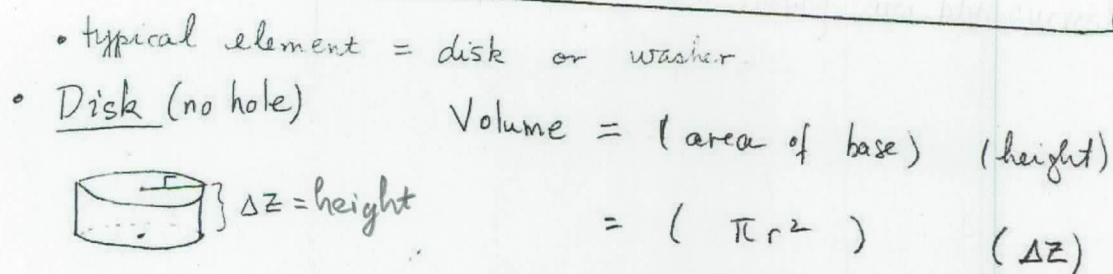 • typical element = disk or washer
• Disk (no hole) Volume = (area of base) (height)
r } ΔZ = height = ( πr² ) (ΔZ)